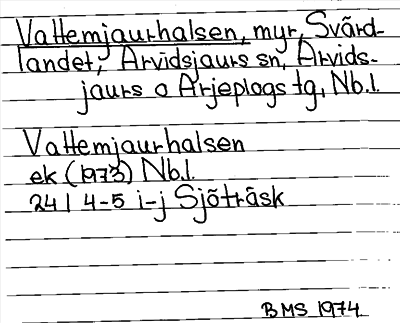 Vattemjaurhalsen, myr, Svärd-
landet, Arvidsjaurs sn, Arvids-
jaurs o Arjeplogs tg, Nb.l.
Vattemjaurhalsen
ek (1973) Nb.l.
24 I 4-5 i-j Sjöträsk
BMS 1974